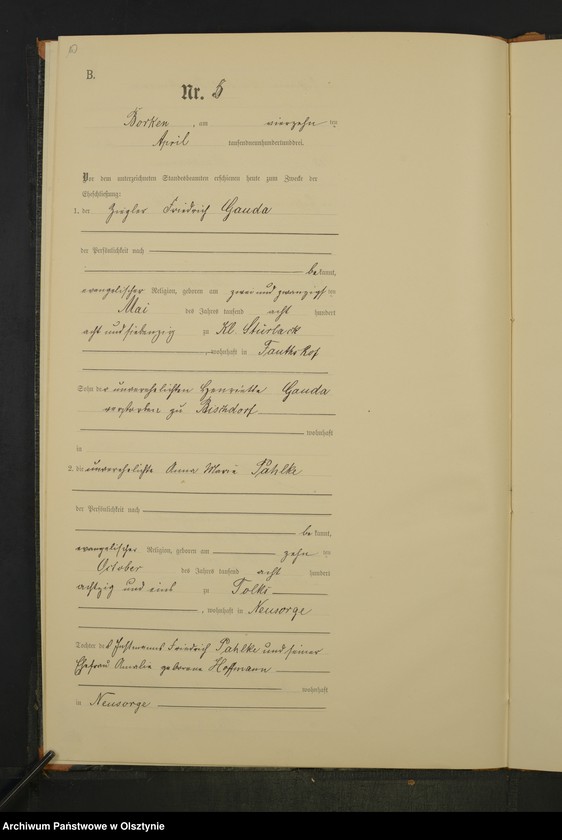 6)
B.
Nr. 5
Borken, am vierzehn ten
April tausendneunhundertunddrei.
Vor dem unterzeichneten Standesbeamten erschienen heute zum Zwecke der
Eheschließung:
1. der Ziegler Friedrich Gauda
der Persönlichkeit nach
bekannt,
evangelischer Religion, geboren am zwei und zwanzigsten
Mai des Jahres tausend acht hundert
acht und siebenzig zu Kl. Stürlack
, wohnhaft in
Sohn der unverehelichten Henriette Gauda
verstorben zu Bischdorf
wohnhaft
in
2. die unverehelichte Anna Marie Pahlke
der Persönlichkeit nach
bekannt,
evangelischer Religion, geboren am zehn ten
October des Jahres tausend acht hundert
achtzig und eins zu Tolks
, wohnhaft in Neusorge
Tochter des Instmanns Friedrich Pahlke und seiner
Ehefrau Amalie geborene Hoffmann
wohnhaft
in Neusorge
Archiwum Państwowe w Olsztynie